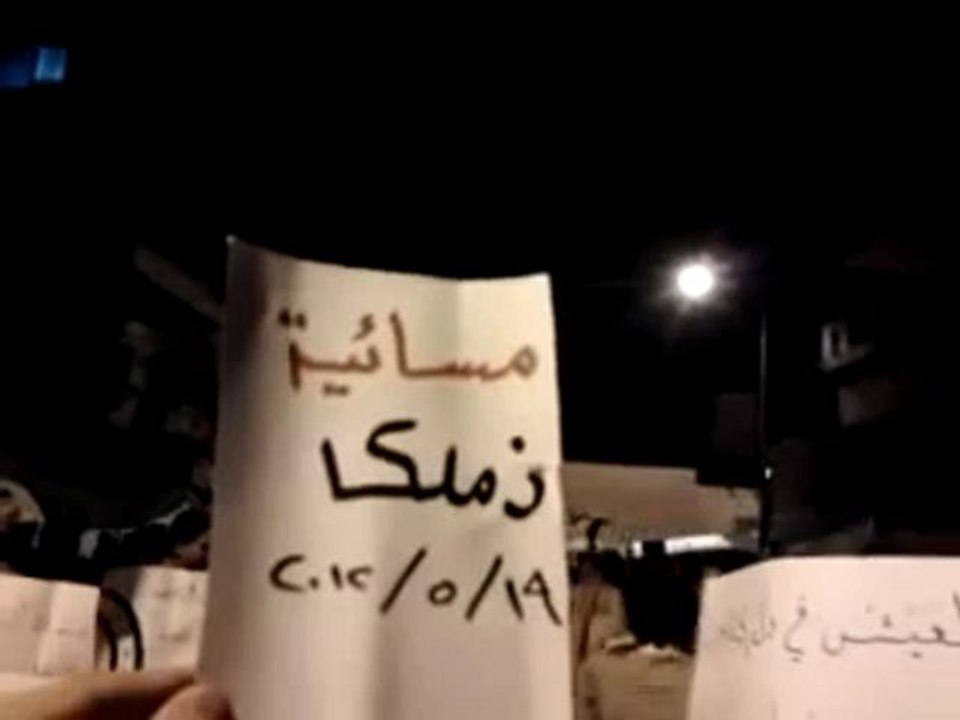 مسائية
زملكا
١٩/٥/٢٠١٢
لعيش في